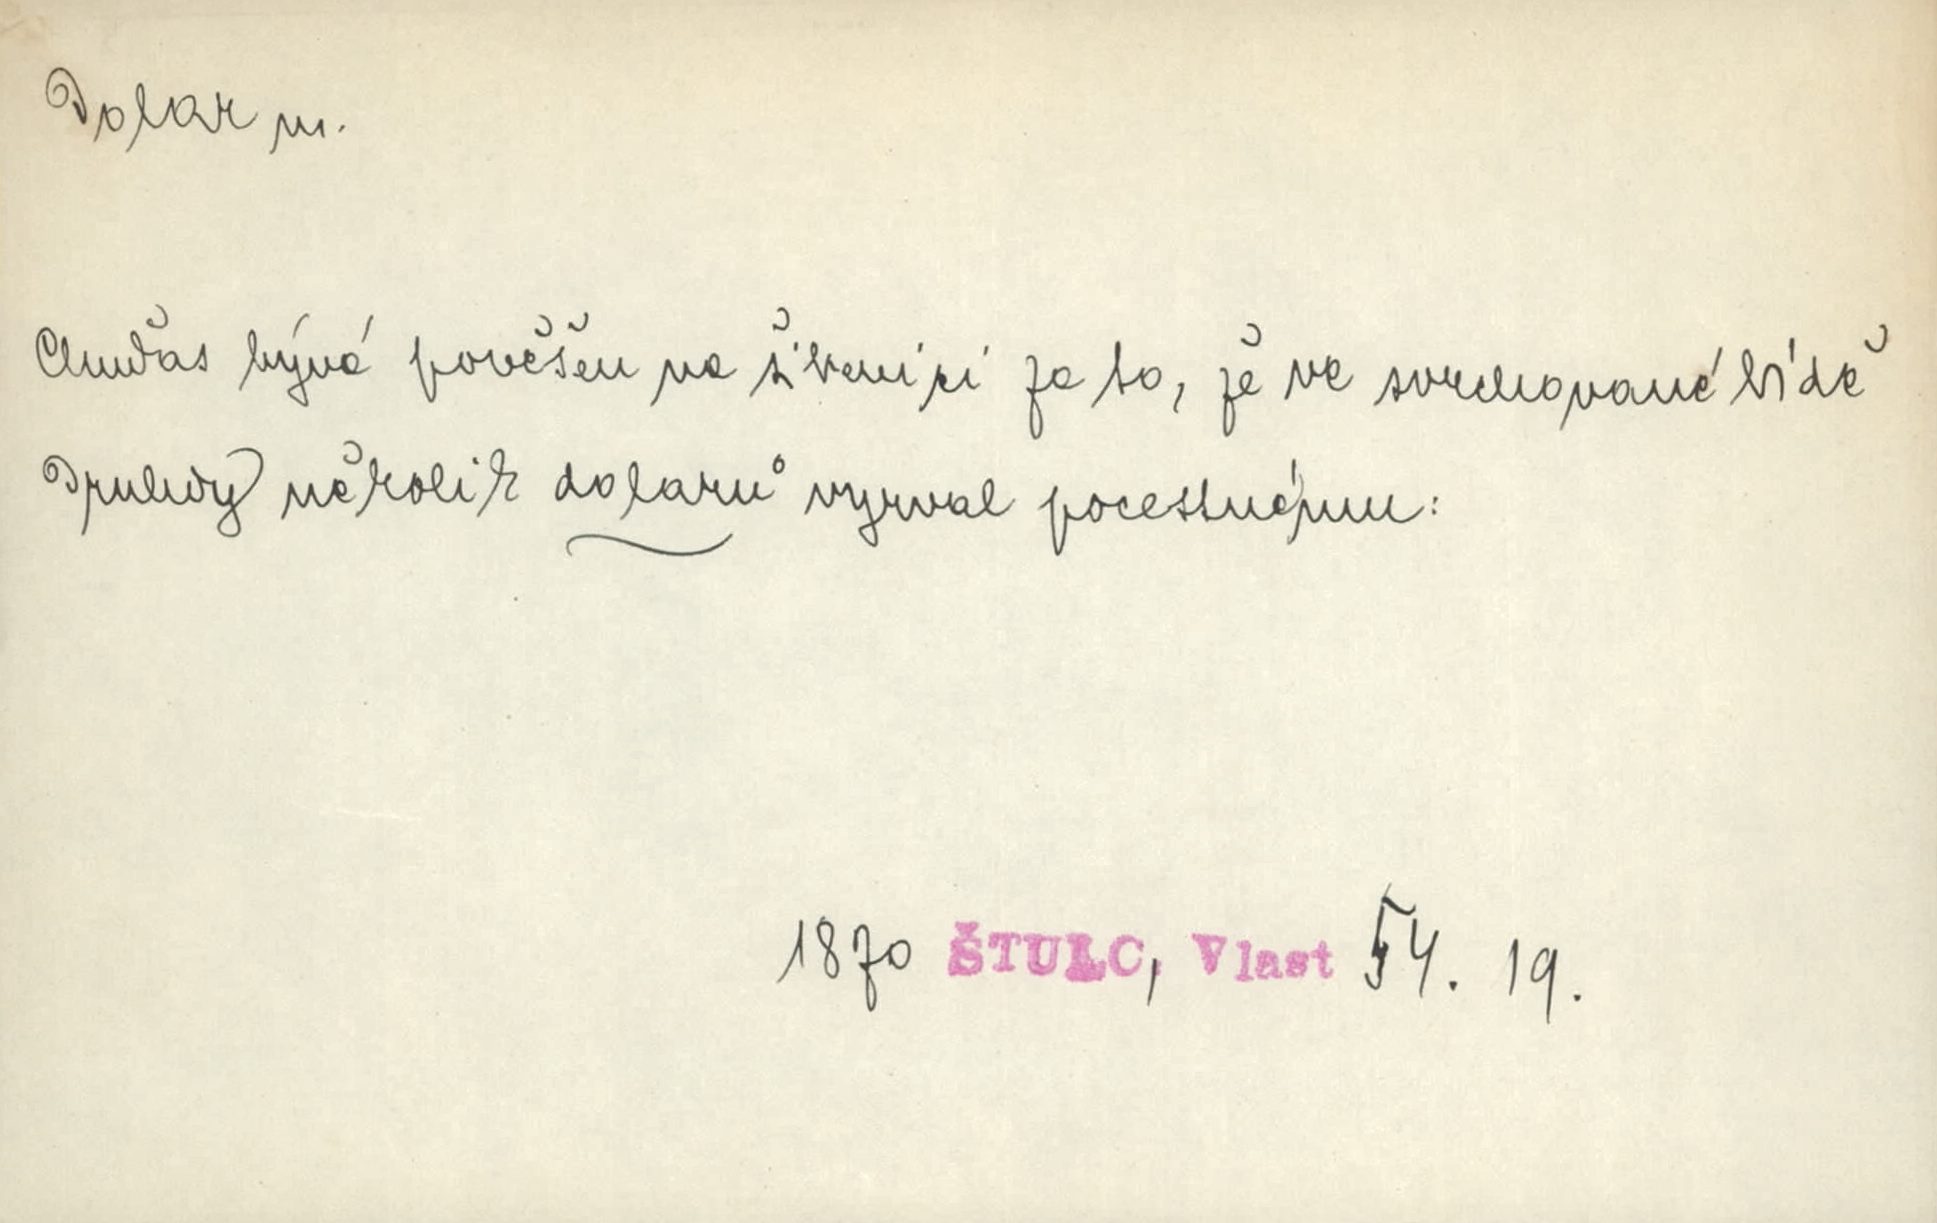 Dolar m.
Chuďas bývá pověšen na šibenici za to, že ve svrchované bídě
druhdy několik dolarů vyrval pocestnému:
1870 ŠTULC, Vlast 54. 19.